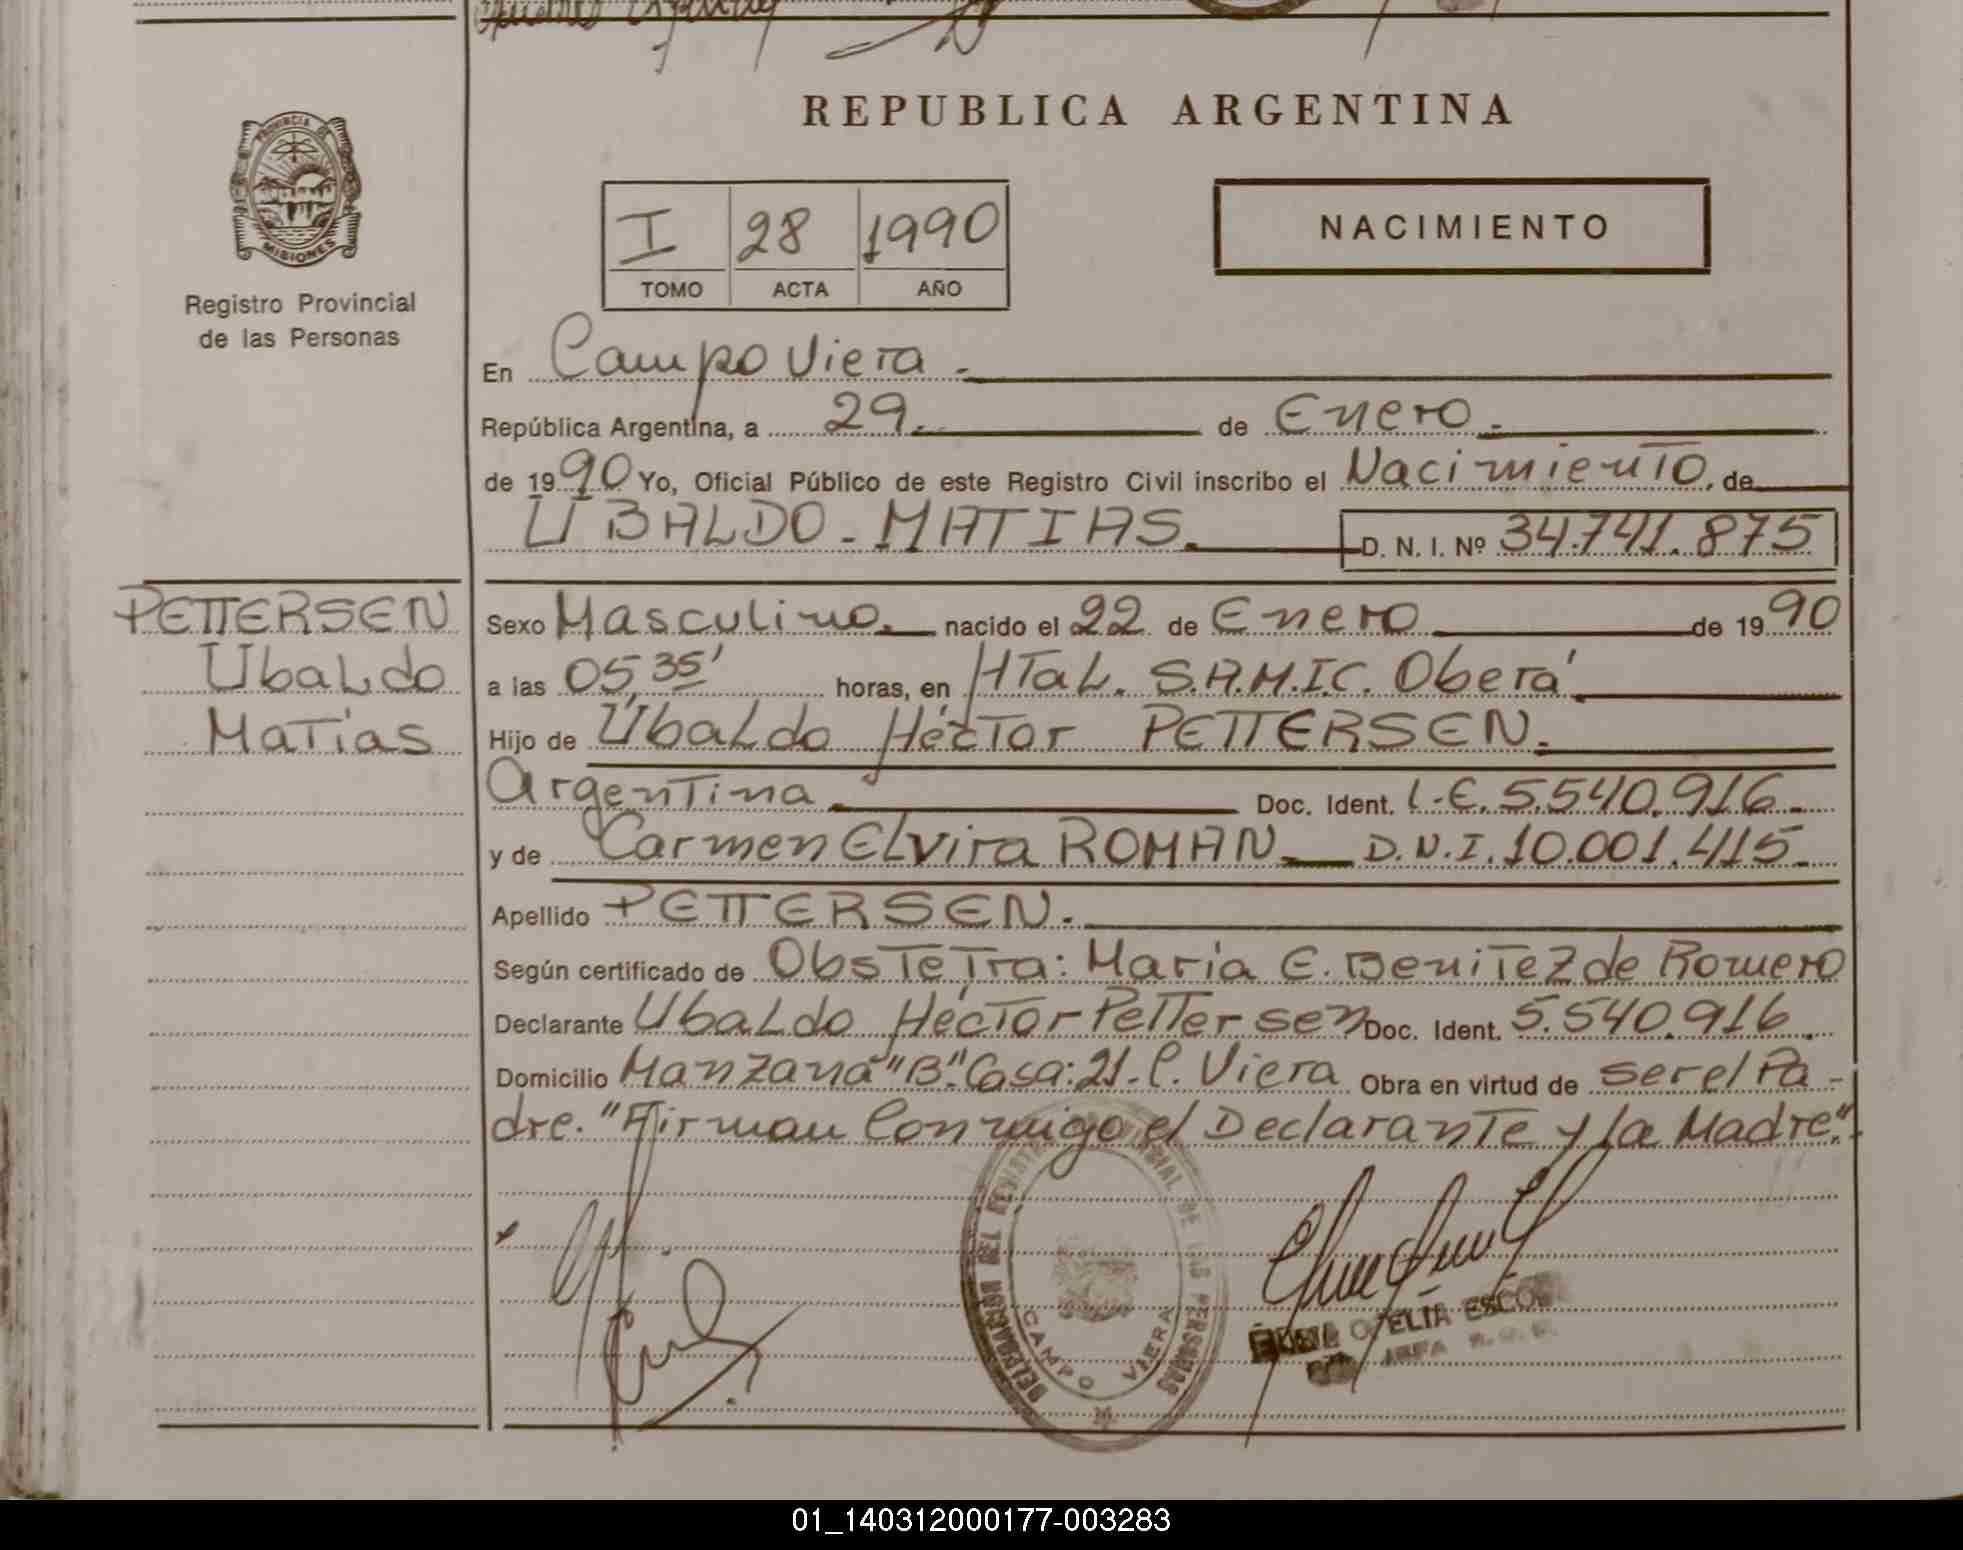 REPUBLICA ARGENTINA
PROVINCIA DE
MISIONES
Registro Provincial
de las Personas
I 28 1990
TOMO ACTA AÑO
NACIMIENTO
En Campo Viera.
República Argentina, a 29. de Enero.
de 1990 Yo, Oficial Público de este Registro Civil inscribo el Nacimiento, de
UBALDO - MATIAS. D. N. I. Nº 34.741.875
PETTERSEN
Ubaldo
Matías
Sexo Masculino. nacido el 22 de Enero de 1990
a las 05,35' horas, en Htal. S.A.M.I.C. Oberá
Hijo de Ubaldo Héctor PETTERSEN.
Argentina. Doc. Ident. L.E. 5.540.916.
y de Carmen Elvira ROMAN D.N.I. 10.001.415.
Apellido PETTERSEN.
Según certificado de Obstetra: María E. Benitez de Romero
Declarante Ubaldo Héctor Pettersen Doc. Ident. 5.540.916.
Domicilio Manzana "B". Casa: 21-C. Viera Obra en virtud de ser el Pa-
dre. "Firman Conmigo el Declarante y la Madre".
DELEGACION DEL REGISTRO PROVINCIAL DE LAS PERSONAS
CAMPO VIERA
OFELIA
JEFA
01_140312000177-003283